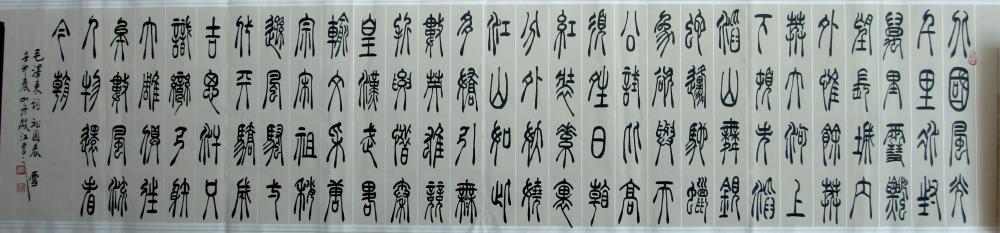 北國風光
千里冰封
萬里雪飄
望長城內
外惟餘莽
莽大河上
下頓失滔
滔山舞銀
蛇原馳蠟
象欲與天
公試比高
須晴日看
紅裝素裹
分外妖嬈
江山如此
多嬌引無
數英雄競
折腰惜秦
皇漢武略
輸文采唐
宗宋祖稍
遜風騷一
代天驕成
吉思汗只
識彎弓射
大雕俱往
矣數風流
人物還看
今朝
毛澤東詞沁園春 雪
辛卯春